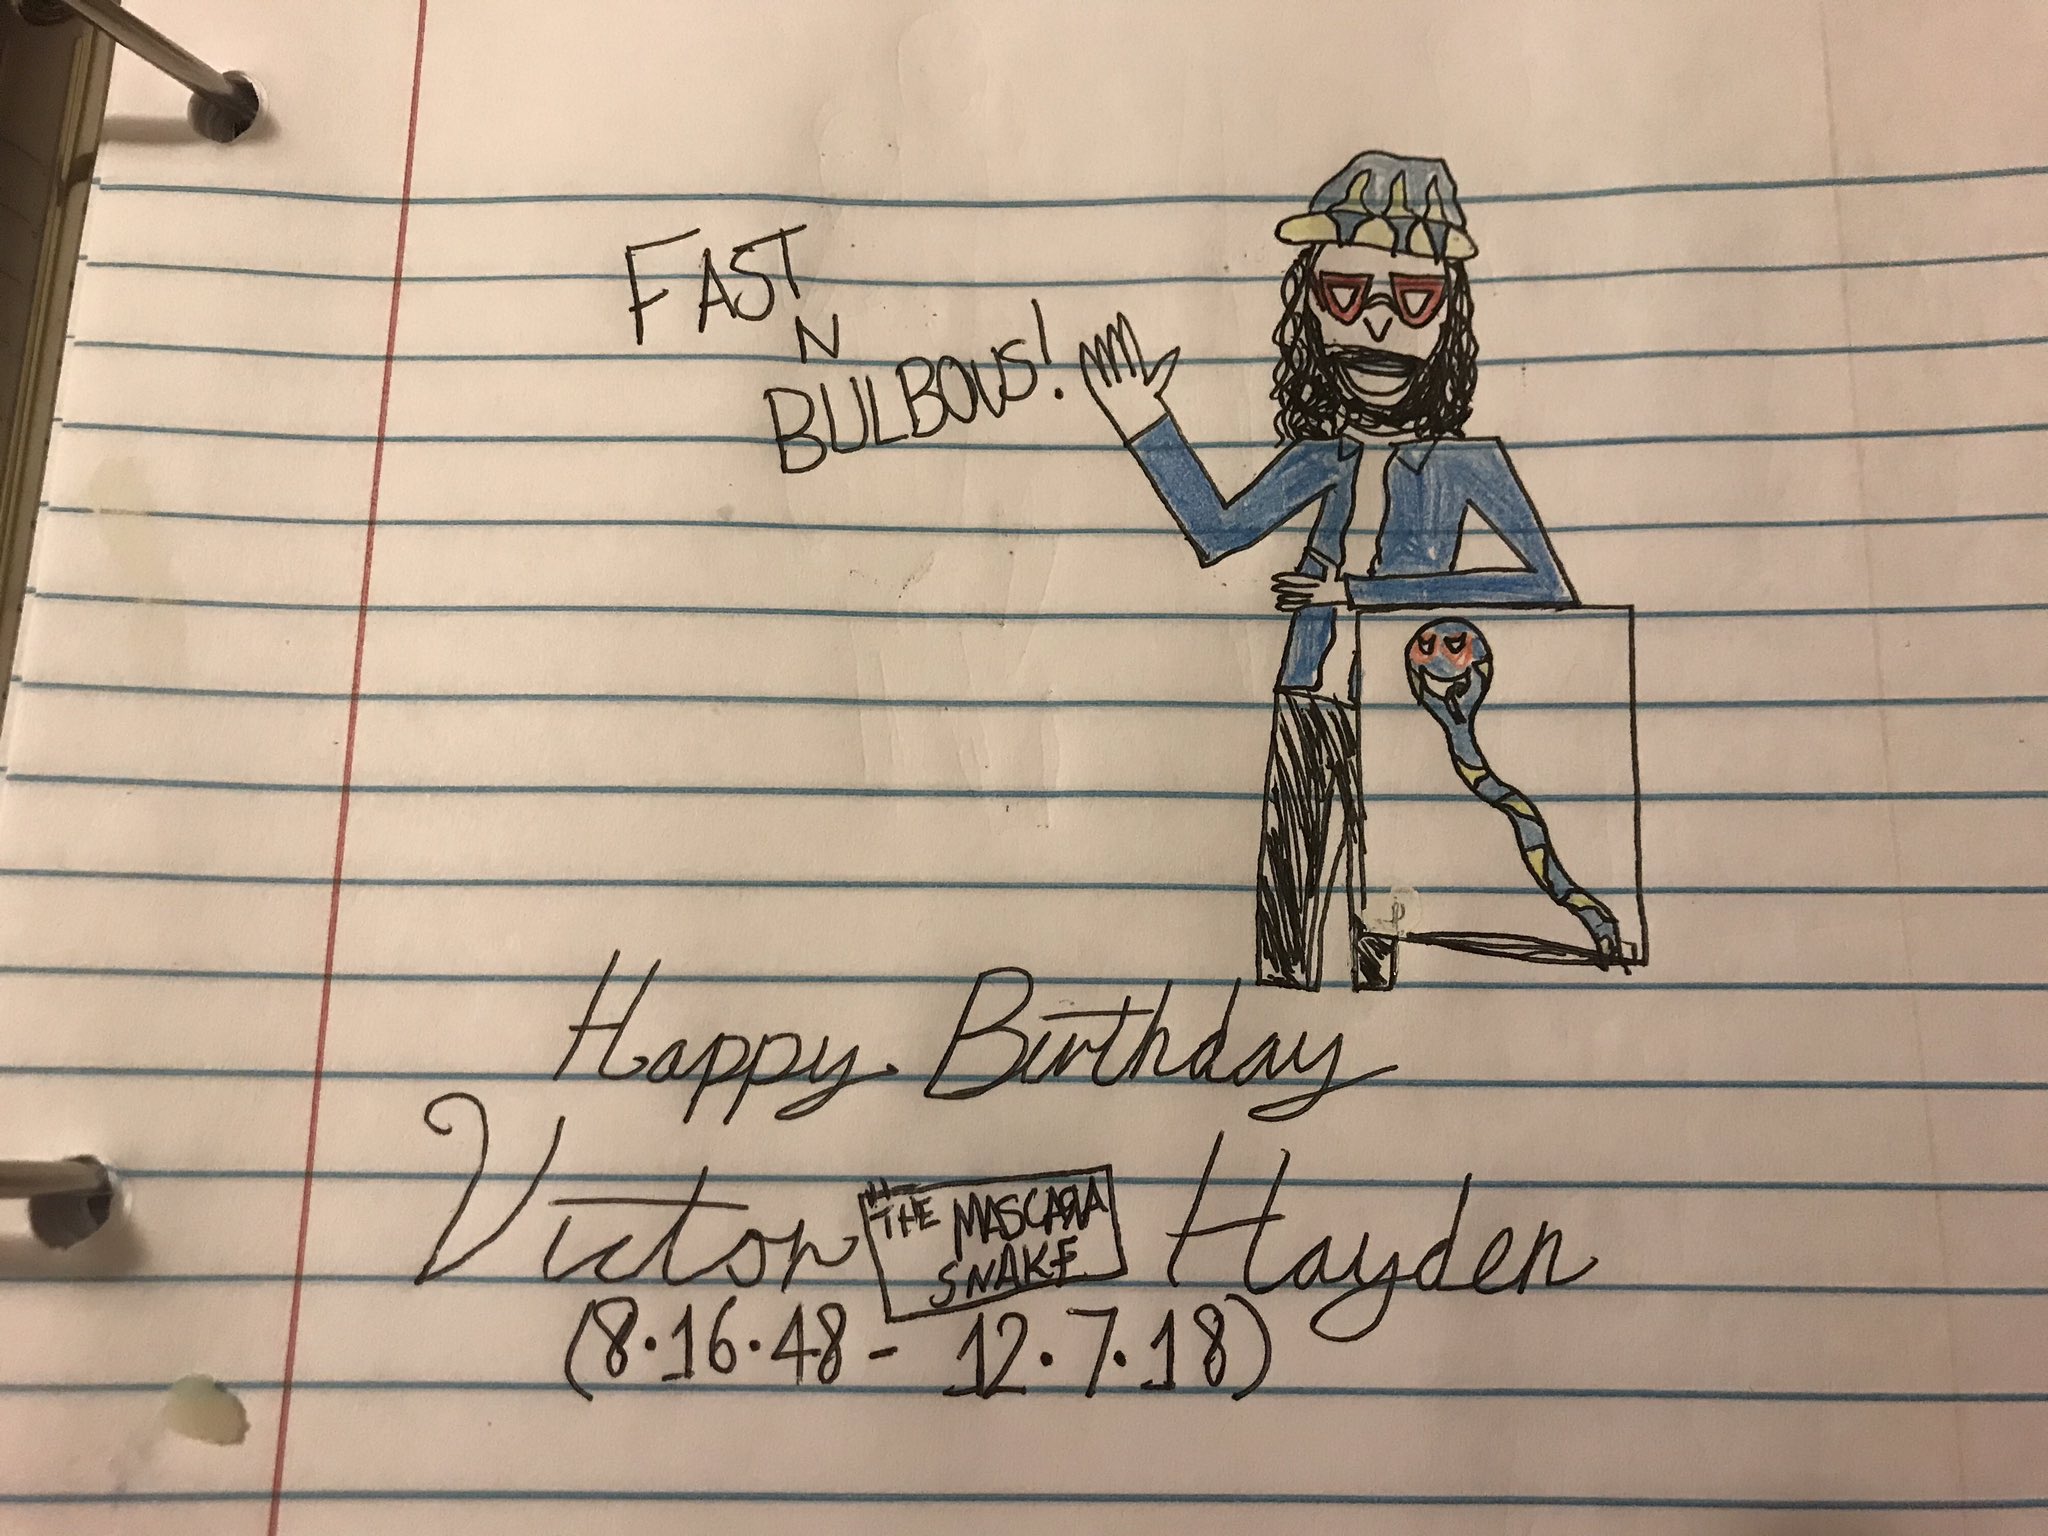 FAST
N
BULBOUS!
Happy Birthday
Victor THE MASCARA SNAKE Hayden
(8.16.48 - 12.7.18)